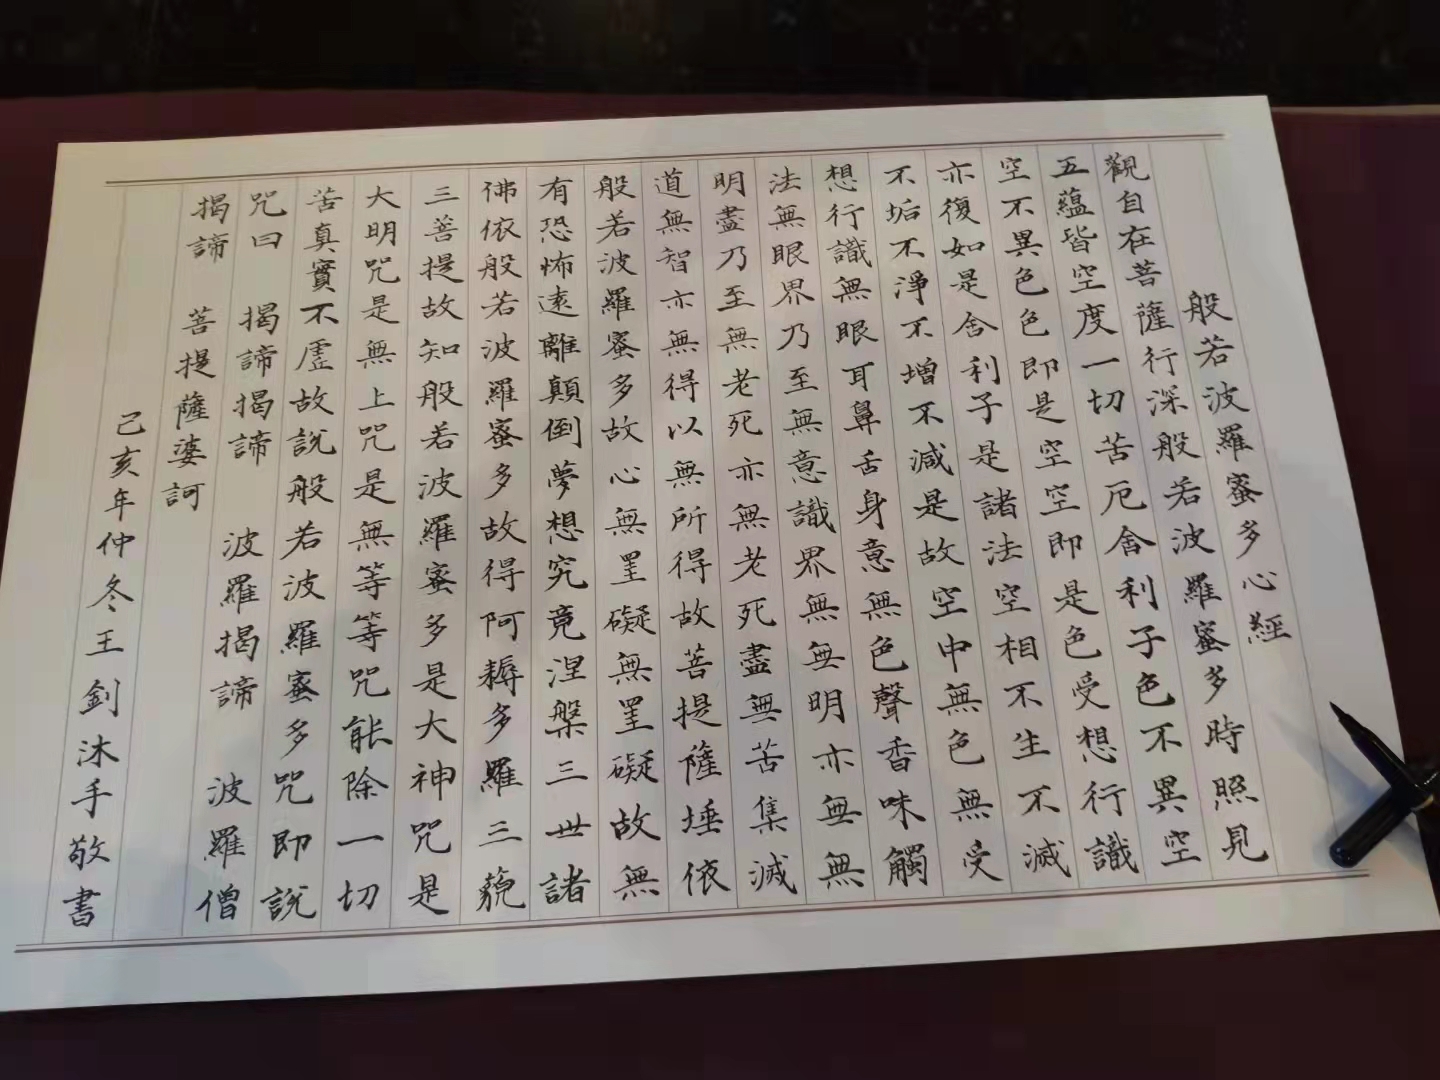 般若波羅蜜多心經
觀自在菩薩行深般若波羅蜜多時照見
五蘊皆空度一切苦厄舍利子色不異空
空不異色色即是空空即是色受想行識
亦復如是舍利子是諸法空相不生不滅
不垢不淨不增不減是故空中無色無受
想行識無眼耳鼻舌身意無色聲香味觸
法無眼界乃至無意識界無無明亦無無
明盡乃至無老死亦無老死盡無苦集滅
道無智亦無得以無所得故菩提薩埵依
般若波羅蜜多故心無罣礙無罣礙故無
有恐怖遠離顛倒夢想究竟涅槃三世諸
佛依般若波羅蜜多故得阿耨多羅三藐
三菩提故知般若波羅蜜多是大神咒是
大明咒是無上咒是無等等咒能除一切
苦真實不虛故說般若波羅蜜多咒即說
咒曰 揭諦揭諦 波羅揭諦 波羅僧
揭諦 菩提薩婆訶
己亥年仲冬王釗沐手敬書